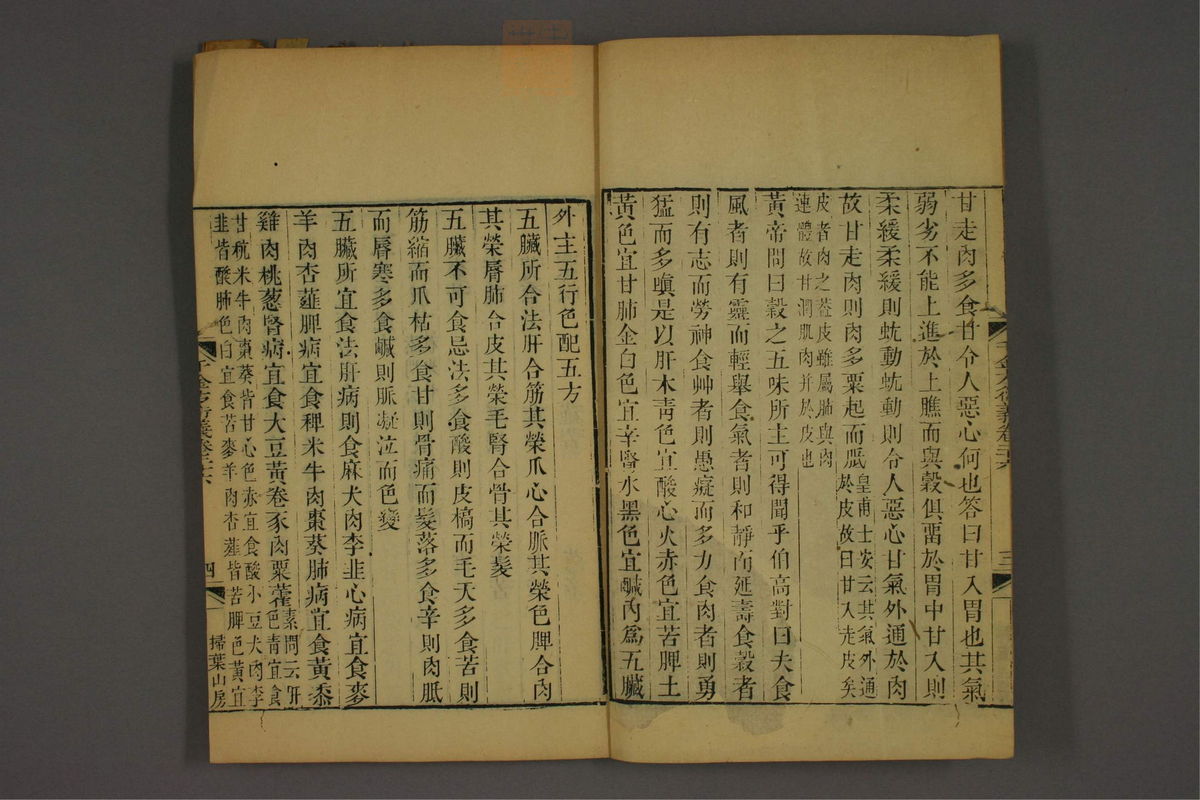 甘走肉多食甘令人惡心何也答曰甘入胃也其氣
弱劣不能上進於上膲而與穀俱畱於胃中甘入則
柔緩柔緩則蚘動蚘動則令人惡心甘氣外通於肉
故甘走肉則肉多粟起而胝皇甫士安云其氣外通
於皮故曰甘入走皮矣
皮者肉之葢皮雖屬肺與肉
連體故甘潤肌肉并於皮也
黃帝問曰穀之五味所主可得聞乎伯高對曰夫食
風者則有靈而輕舉食氣者則和靜而延壽食穀者
則有志而勞神食艸者則愚癡而多力食肉者則勇
猛而多嗔是以肝木靑色宜酸心火赤色宜苦脾土
黃色宜甘肺金白色宜辛腎水黑色宜鹹內爲五臟
千金方衍義卷二十六
三
外主五行色配五方
五臟所合法肝合筋其榮爪心合脈其榮色脾合肉
其榮脣肺合皮其榮毛腎合骨其榮髮
五臟不可食忌法多食酸則皮槁而毛夭多食苦則
筋縮而爪枯多食甘則骨痛而髮落多食辛則肉胝
而脣寒多食鹹則脈凝泣而色變
五臟所宜食法肝病則食麻犬肉李韭心病宜食麥
羊肉杏薤脾病宜食稗米牛肉棗葵肺病宜食黃黍
雞肉桃葱腎病宜食大豆黃卷豕肉粟藿素問云肝
色靑宜食
甘秔米牛肉棗葵皆甘心色赤宜食酸小豆犬肉李
韭皆酸肺色白宜食苦麥羊肉杏薤皆苦脾色黃宜
千金方衍義卷二十六
四
掃葉山房